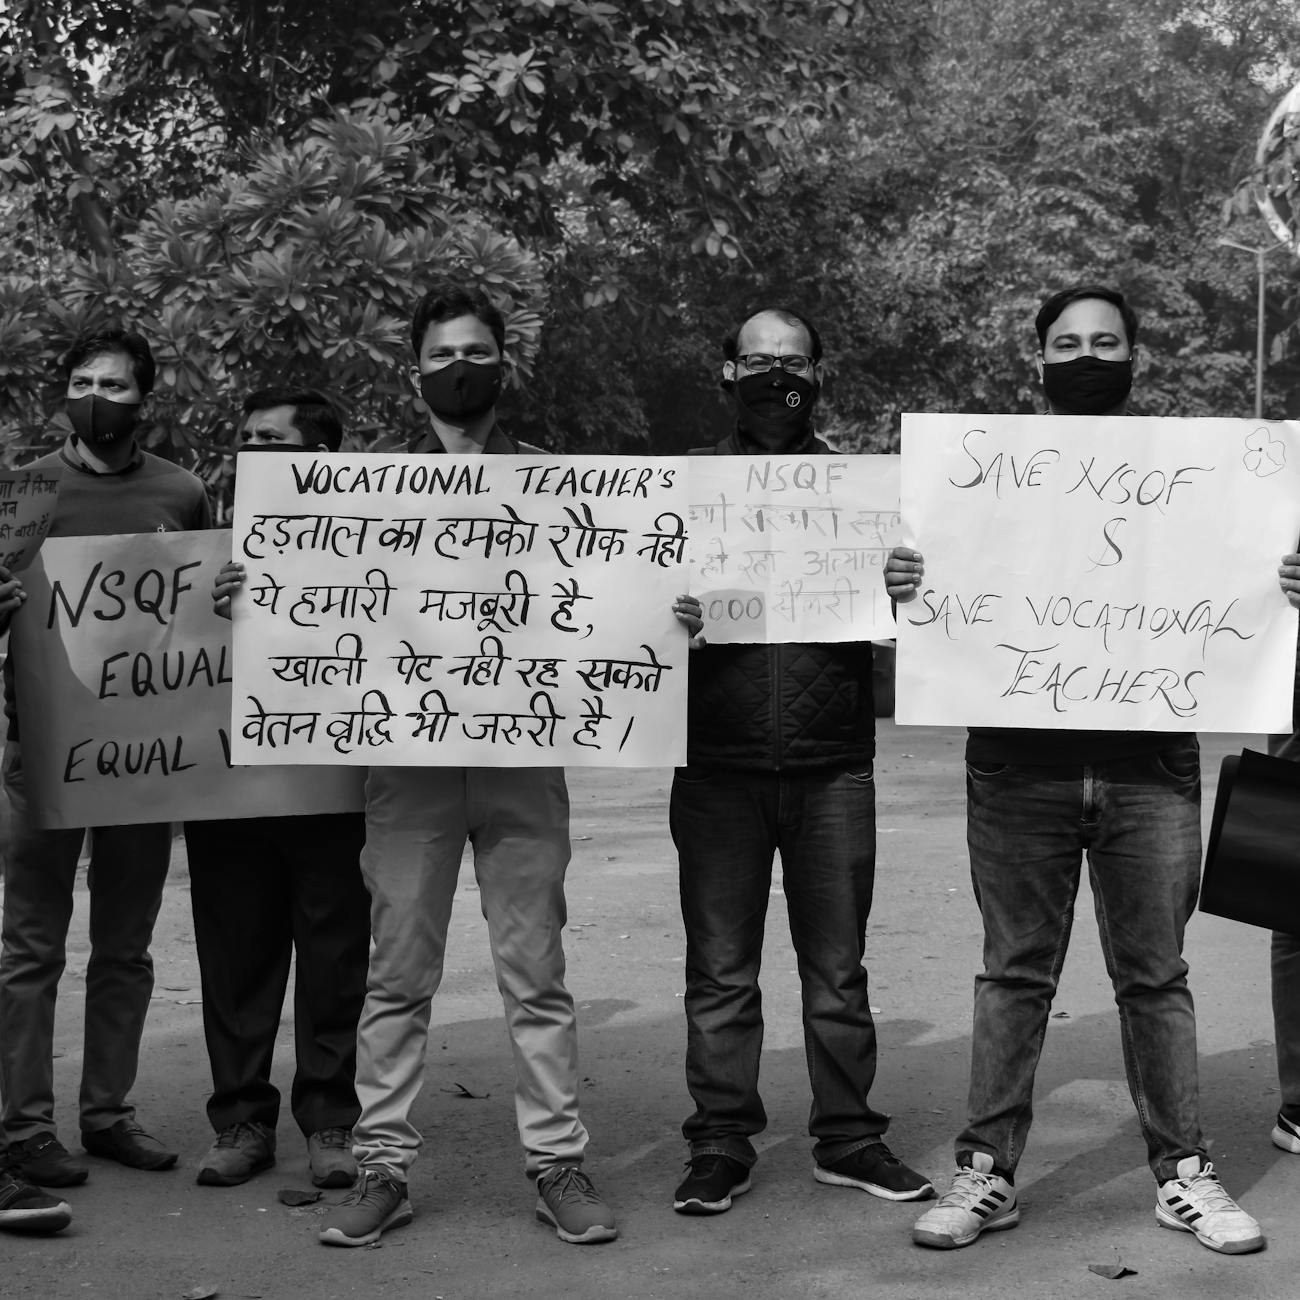 NSQF
EQUAL
EQUAL
VOCATIONAL TEACHER'S
हड़ताल का हमको शौक नहीं
ये हमारी मजबूरी है,
खाली पेट नही रह सकते
वेतन वृद्धि भी जरुरी है।
NSQF
सरकारी स्कूल
हो रहा अत्याचा
सैलरी।
SAVE NSQF
&
SAVE VOCATIONAL
TEACHERS